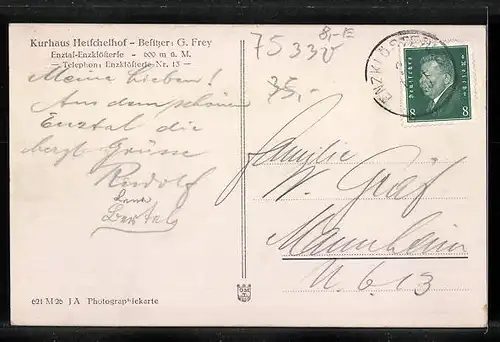 Kurhaus Hetschelhof - Besitzer: G. Frey
Enztal-Enzklösterle - 600 m ü. M.
— Telephon: Enzklösterle Nr. 13 —
Meine Lieben!
Aus dem schönen
Enztal die
herzl. Grüsse
Rudolf
Lene
Bertel
75330
35,-
ENZKLÖSTERLE
Deutsches Reich
8 8
Familie
W. Gräf
Mannheim
U. 6. 13
621 M 26 J A Photographiekarte